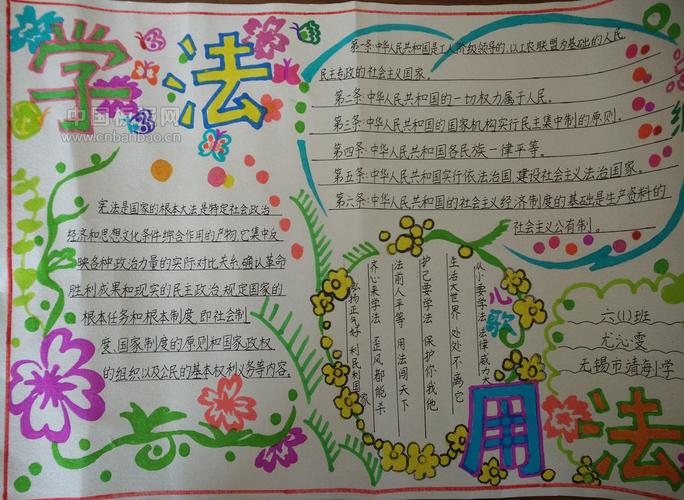 学法
中国板报网
www.cnbanbao.cn
宪法是国家的根本大法是特定社会政治
经济和思想文化条件综合作用的产物它集中反
映各种政治力量的实际对比关系,确认革命
胜利成果和现实的民主政治,规定国家的
根本任务和根本制度,即社会制
度、国家制度的原则和国家政权
的组织以及公民的基本权利义务等内容。
第一条:中华人民共和国是工人阶级领导的,以工农联盟为基础的人民
民主专政的社会主义国家。
第二条:中华人民共和国的一切权力属于人民。
第三条:中华人民共和国的国家机构实行民主集中制的原则。
第四条:中华人民共和国各民族一律平等。
第五条:中华人民共和国实行依法治国,建设社会主义法治国家。
第六条:中华人民共和国的社会主义经济制度的基础是生产资料的
社会主义公有制。
心歌
从小要学法法律威力大
生活大世界 处处不离它
护己要学法 保护你我他
法前人平等 用法闯天下
齐心来学法 歪风都能杀
弘扬正气好 利民利国家
六(1)班
尤沁雯
无锡市靖海小学
用法